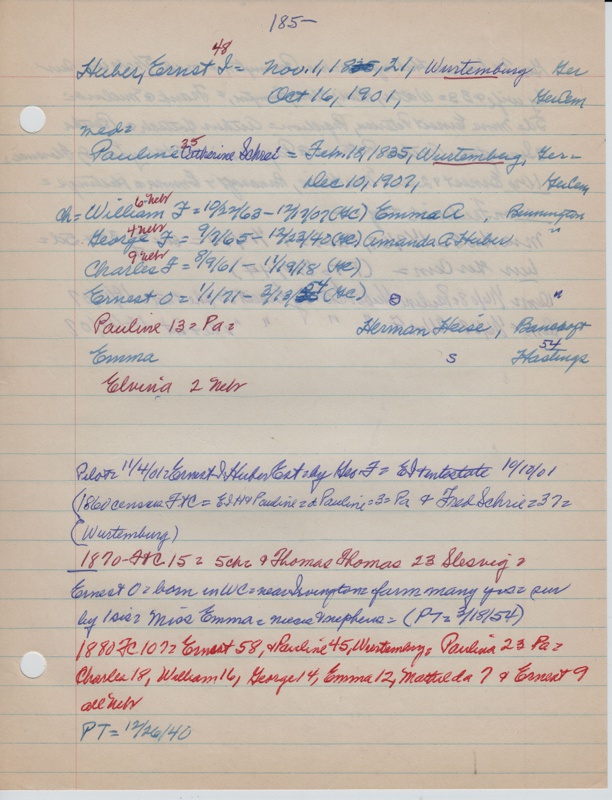 185-
48
Huber, Ernst I = Nov. 1, 1821, Wurtemburg Ger
Oct 16, 1901, GerCem
med =
25
Pauline Catherine Schrel = Feb. 18, 1835, Wurtemburg, Ger-
Dec 10, 1907, GerCem
6 Nebr
ch= William F = 10/22/63 - 12/12/07 (GC) Emma A , Bennington
4 Nebr
George F = 9/2/65 - 12/23/40 (GC) Amanda A Huber "
9 Nebr
Charles F = 8/9/61 - 11/19/18 (GC)
Ernest O = 1/1/71 - 3/13/54 (GC) "
Pauline 13 = Pa = Herman Heise, Bancroft
54
Emma S Hastings
Elvina 2 Nebr
Pilot = 11/4/01 = Ernest I Huber Est = by Geo F = EI + intestate 10/12/01
(1860 census F+C = EIH + Pauline = & Pauline = 3 = Pa & Fred Schrie = 37 =
(Wurtemburg)
1870 - F+C 15 = 5 ch = & Thomas Thomas 23 Slesvig =
Ernest O = born in WC = near Irvington = farm many yrs = sur
by 1 sis = Miss Emma = nieces & nephews = (PT = 3/18/54)
1880 FC 107 = Ernest 58, & Pauline 45, Wurtemburg, Paulina 23 Pa =
Charles 18, William 16, George 14, Emma 12, Mathilda 7 & Ernest 9
all Nebr
PT = 12/26/40